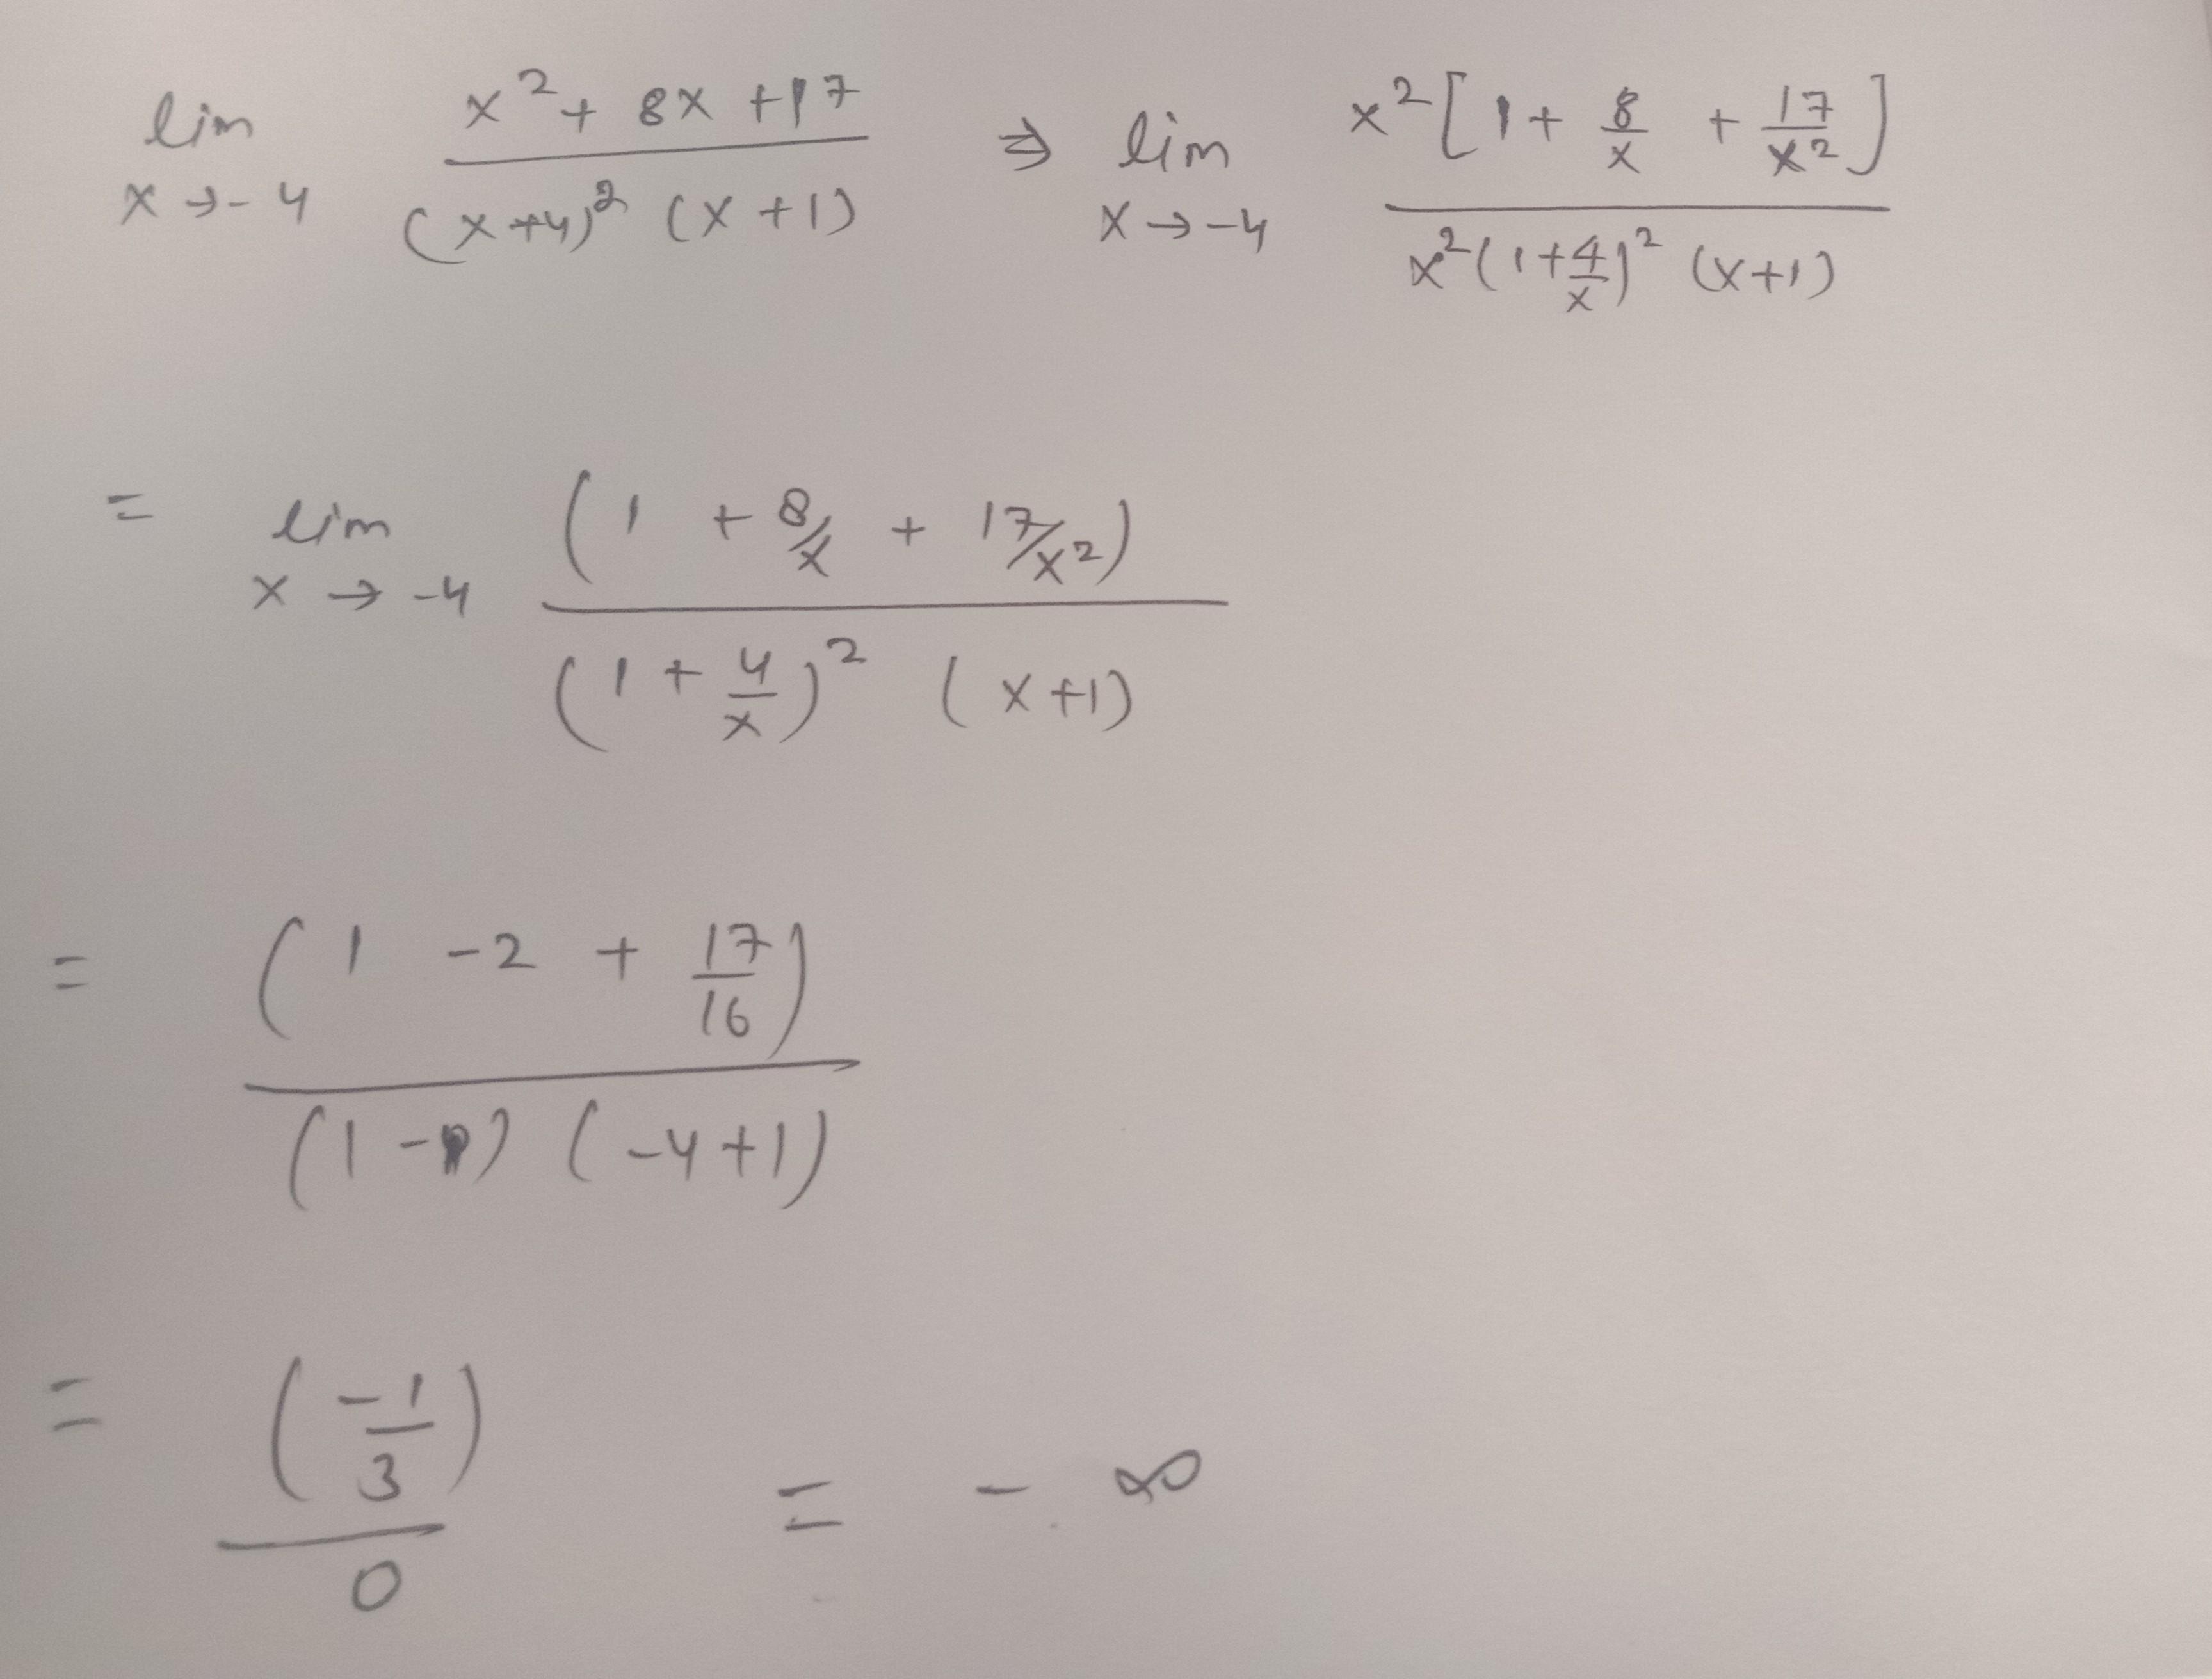 lim x→-4 (x² + 8x + 17) / ((x+4)² (x+1)) ⇒ lim x→-4 x²[1 + 8/x + 17/x²] / (x²(1+4/x)² (x+1))
= lim x→-4 (1 + 8/x + 17/x²) / ((1 + 4/x)² (x+1))
= (1 -2 + 17/16) / ((1-1) (-4+1))
= (-1/3) / 0 = - ∞